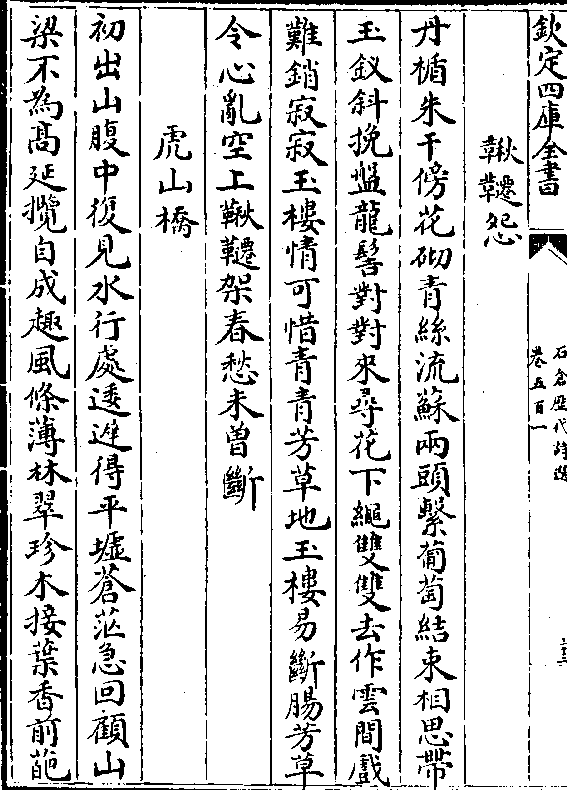 欽定四庫全書
石倉歷代詩選
卷五百一
鞦韆怨
丹楯朱干傍花砌青絲流蘇兩頭繫葡萄結束相思帶
玉釵斜挽盤龍髻對對來尋花下繩雙雙去作雲間戲
難銷寂寂玉樓情可惜青青芳草地玉樓易斷腸芳草
令心亂空上鞦韆架春愁未曾斷
虎山橋
初出山腹中復見水行處逶迤得平墟蒼茫急回顧山
梁不為高延攬自成趣風條薄林翠珍木接葉香前葩